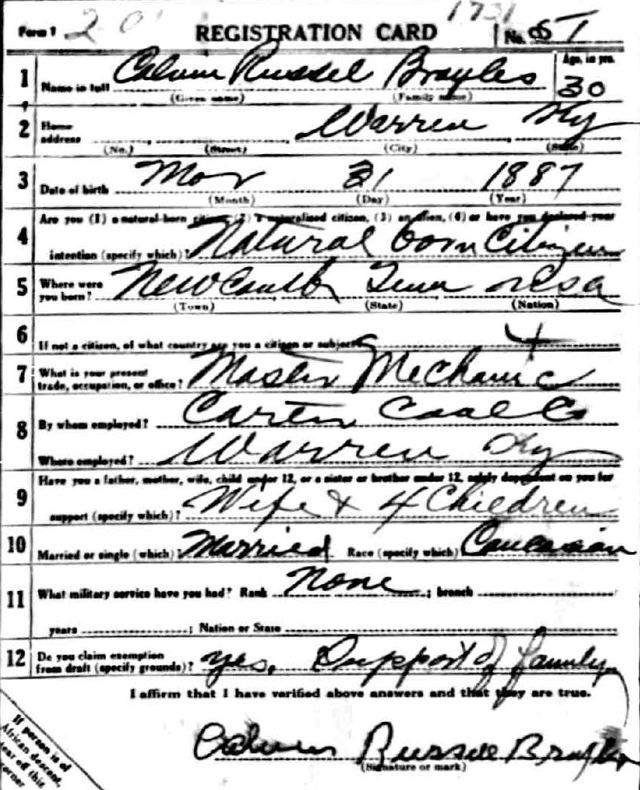 Form 1 20 REGISTRATION CARD 1731 No. 57
1 Name in full Calvin Russel Broyles Age, in yrs. 30
(Given name) (Family name)
2 Home address Warren Ky
(No.) (Street) (City) (State)
3 Date of birth Mar 31 1887
(Month) (Day) (Year)
Are you (1) a natural-born citizen, (2) a naturalized citizen, (3) an alien, (4) or have you declared your
4 intention (specify which)? Natural born Citizen
5 Where were you born? Tenn USA
(Town) (State) (Nation)
6 If not a citizen, of what country are you a citizen or subject?
7 What is your present trade, occupation, or office? Master Mechanic
8 By whom employed? Carter Coal Co
Where employed? Warren Ky
Have you a father, mother, wife, child under 12, or a sister or brother under 12, solely dependent on you for
9 support (specify which)? Wife & 4 Children
10 Married or single (which)? Married Race (specify which)? Caucasian
11 What military service have you had? Rank None ; branch
years ; Nation or State
12 Do you claim exemption from draft (specify grounds)? yes. Support of family
I affirm that I have verified above answers and that they are true.
Calvin Russell Broyles
(Signature or mark)
If person is of
African descent,
tear off this
corner